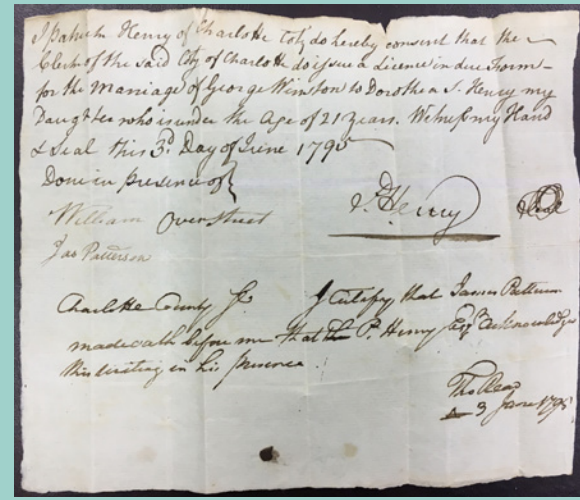 I Patrick Henry of Charlotte Coty do hereby consent that the
Clerk of the said Coty of Charlotte do issue a Licence in due Form
for the Marriage of George Winston to Dorothea S. Henry my
Daughter who is under the Age of 21 years. Witness my Hand
& Seal this 3d. Day of June 1795
Done in presence of
William Overstreet P. Henry Seal
Jas Patterson
Charlotte County Sc. I Certify that James Patterson
made oath before me that P. Henry Esqr. acknowledged
this writing in his presence.
Tho Read
3 June 1795